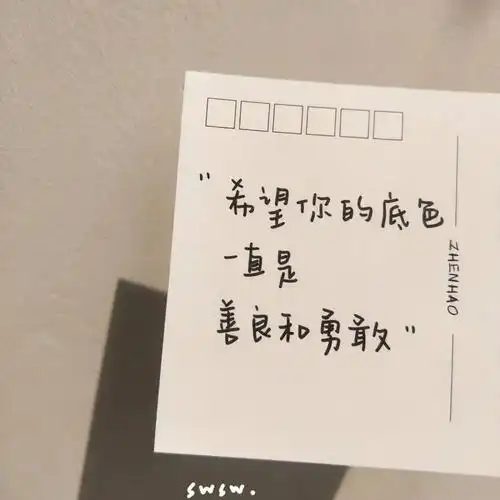 “希望你的底色
一直是
善良和勇敢”
ZHENHAO
swsw.